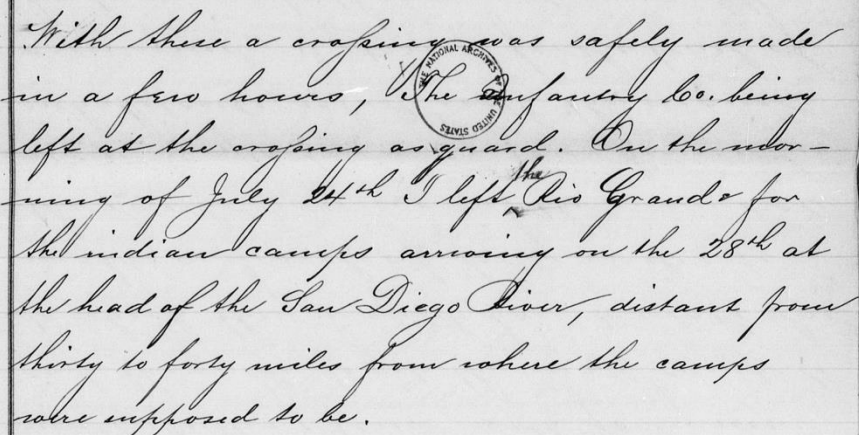 With these a crossing was safely made
in a few hours, The infantry Co. being
left at the crossing as guard. On the mor-
ning of July 24th I left the Rio Grande for
the indian camps arriving on the 28th at
the head of the San Diego River, distant from
thirty to forty miles from where the camps
were supposed to be.
THE NATIONAL ARCHIVES OF THE UNITED STATES